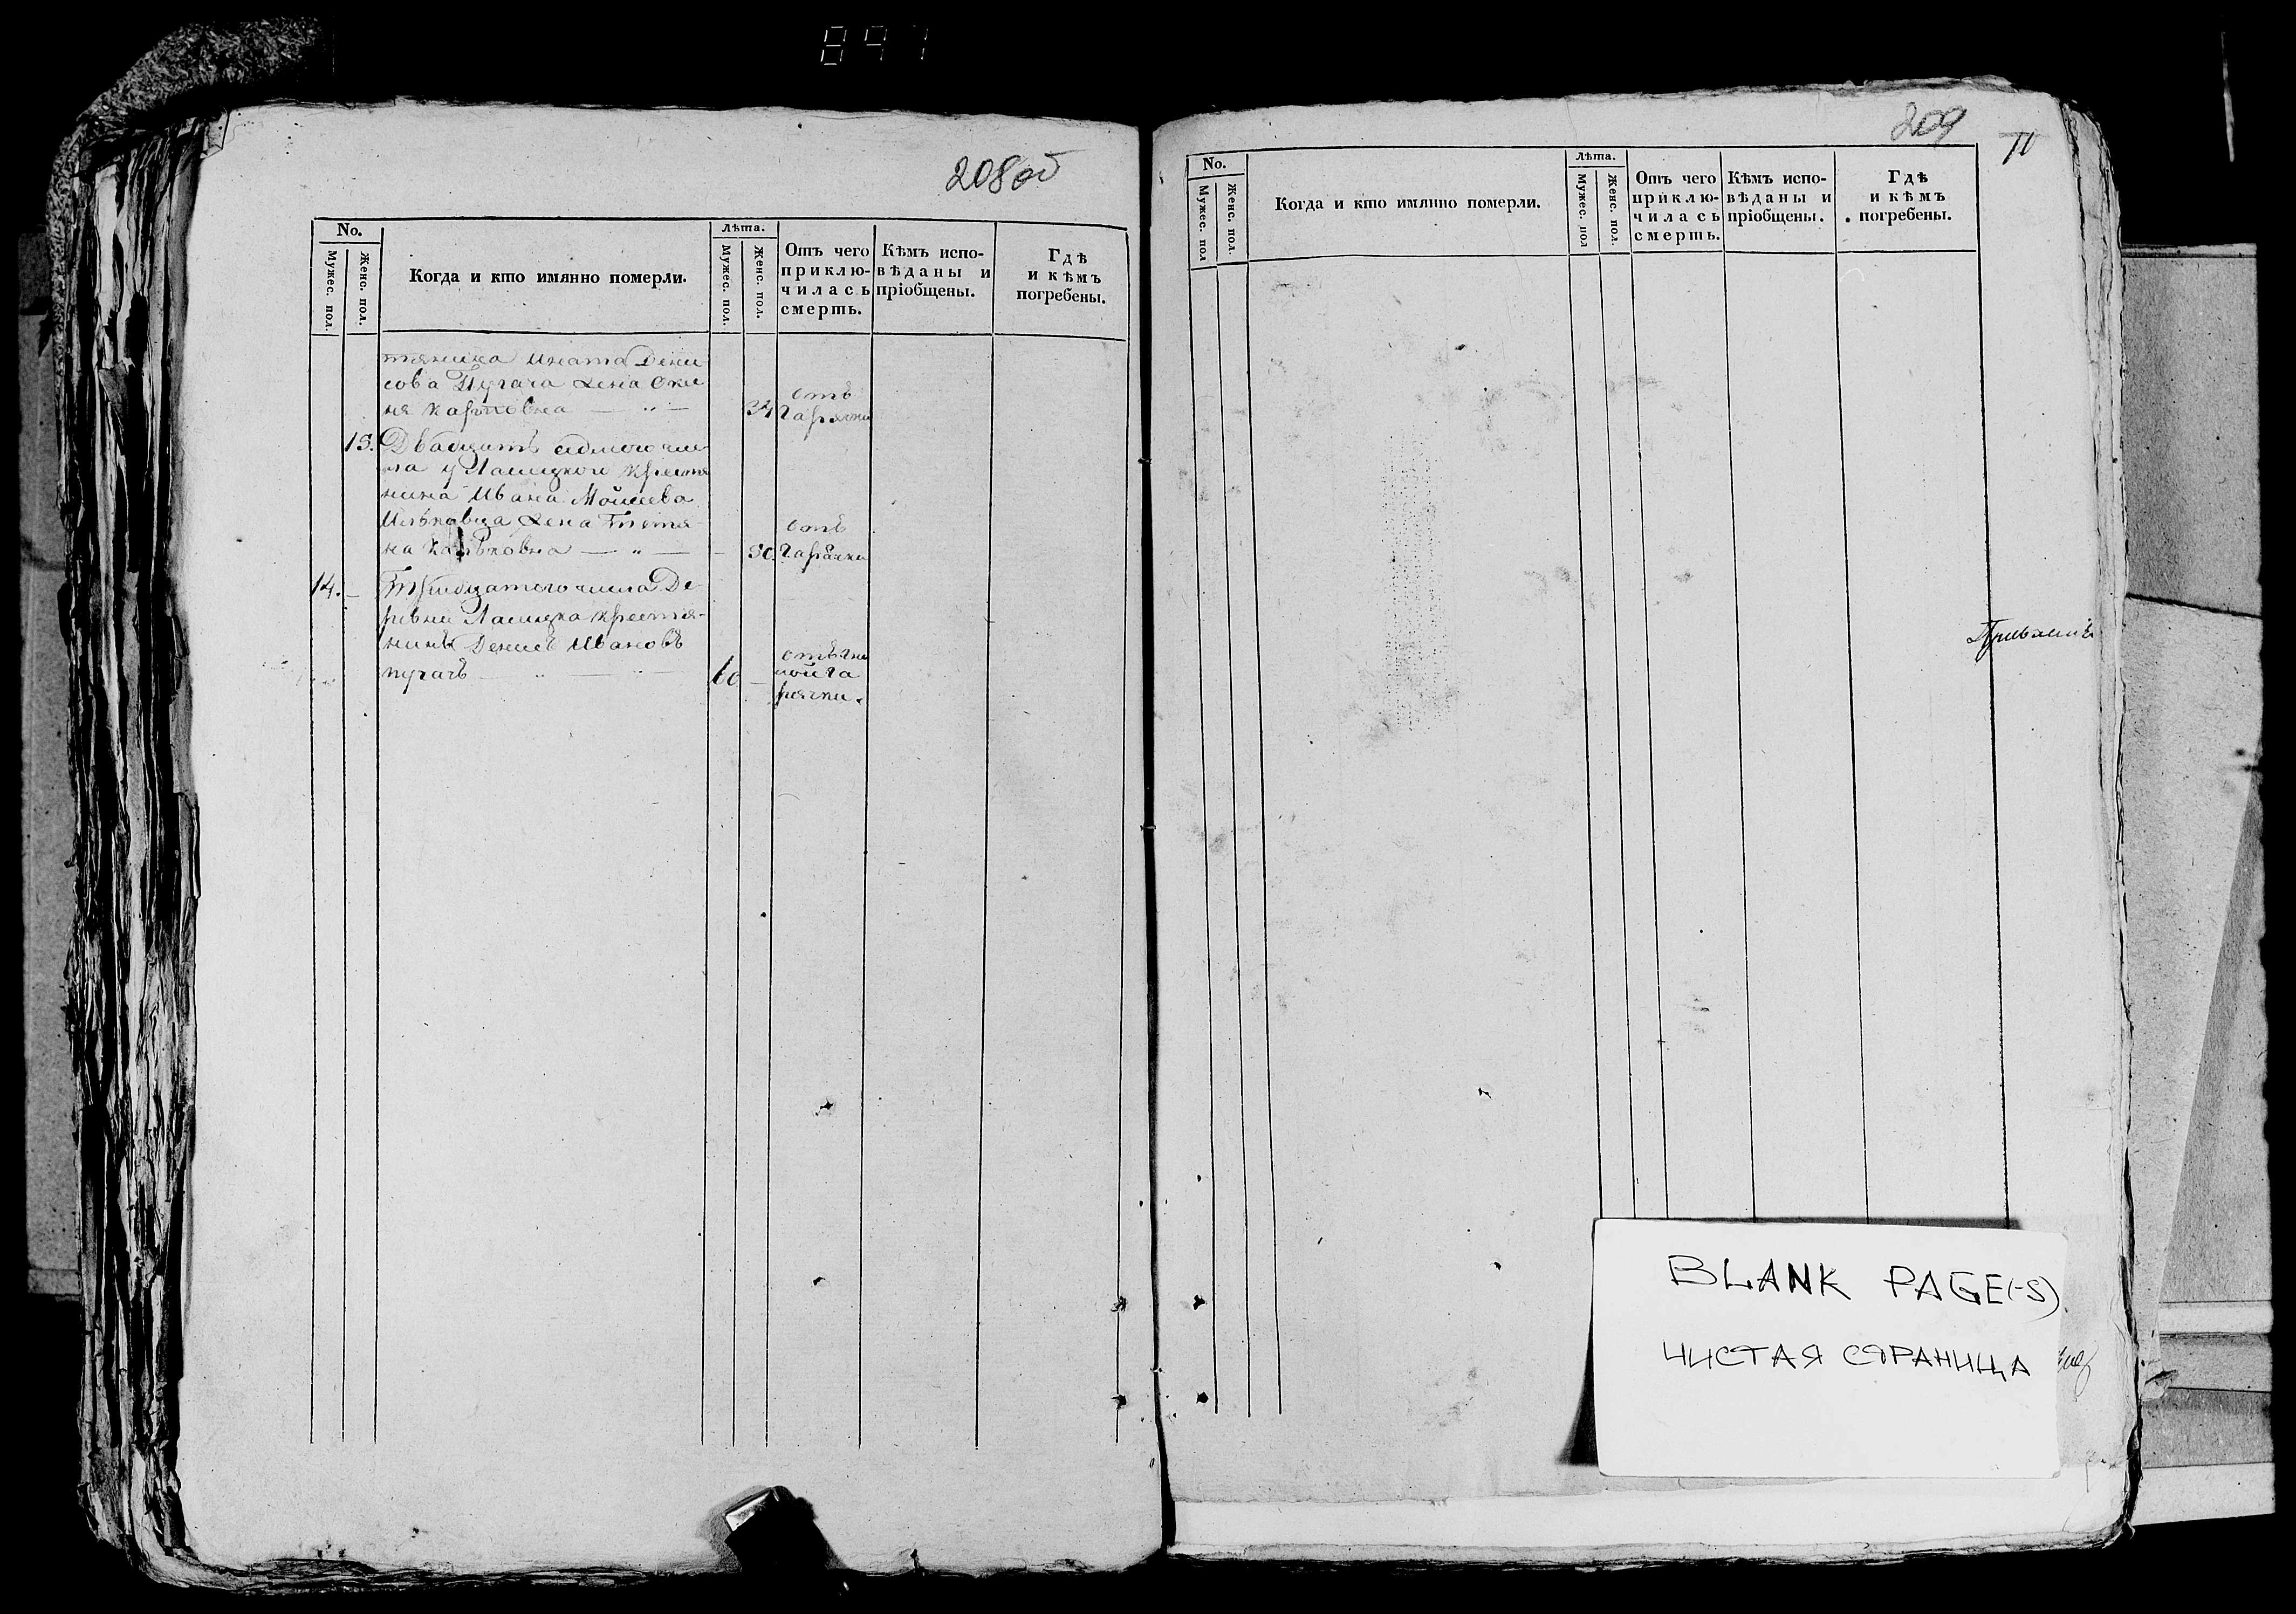 897
208 об
No.
Мужес. пол.
Женс. пол.
Когда и кто имянно померли.
Лѣта.
Мужес. пол.
Женс. пол.
Отъ чего
приклю-
чилась
смерть.
Кѣмъ испо-
вѣданы и
пріобщены.
Гдѣ
и кѣмъ
погребены.
тянина Игната Дени
сова Пугача жена
ня Карповна — „ — 34
отъ
гарячки
13. Двадцать седмого чис
ла у Ласицкого крестья
нина Ивана Мойсеева
жена Татя
на — „ — 30.
отъ
гарячки
14. — Тридцатого числа Де
ревни Ласицка крестья-
нинъ Денисъ Ивановъ
пугачъ — „ — „ — 60 —
отъ гни
лой га
рячки.
209
No.
Мужес. пол
Женс. пол.
Когда и кто имянно померли.
Лѣта.
Мужес. пол
Женс. пол.
Отъ чего
приклю-
чилась
смерть.
Кѣмъ испо-
вѣданы и
пріобщены.
Гдѣ
и кѣмъ
погребены.
BLANK PAGE(-S).
ЧИСТАЯ СТРАНИЦА